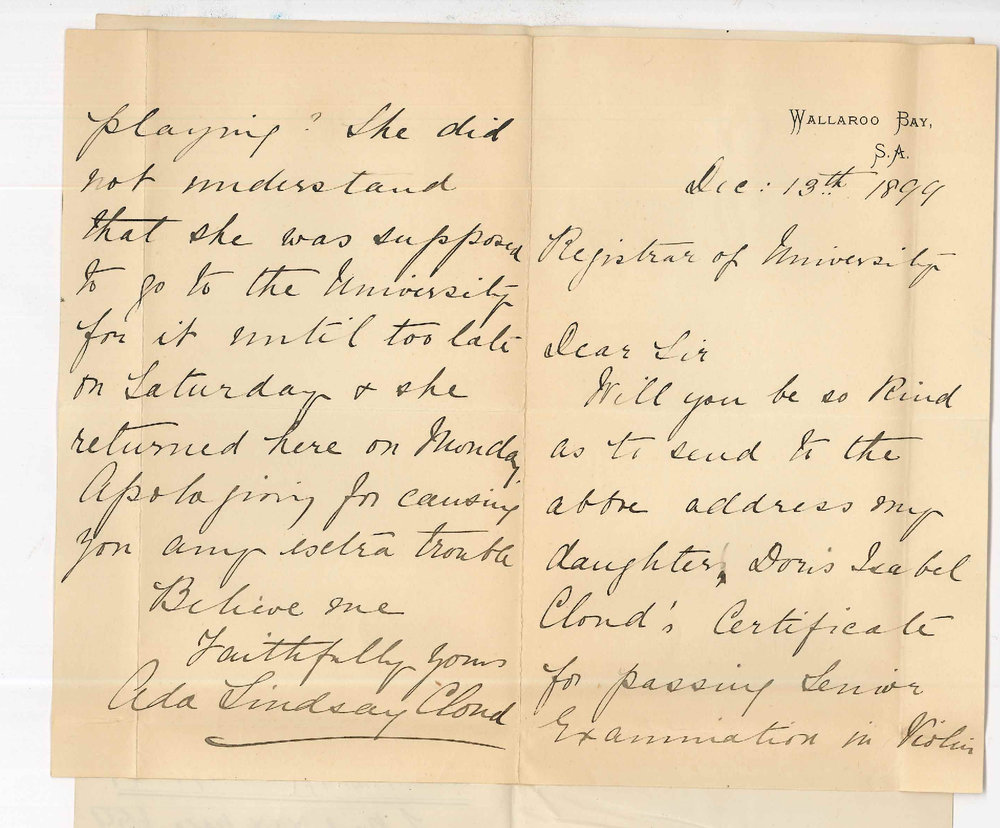 WALLAROO BAY,
S.A.
Dec: 13th 1899
Registrar of University
Dear Sir
Will you be so kind
as to send to the
above address my
daughter, Doris Isabel
Cloud's Certificate
for passing Senior
Examination in Violin
playing? She did
not understand
that she was supposed
to go to the University
for it until too late
on Saturday & she
returned here on Monday
Apologising for causing
you any extra trouble
Believe me
Faithfully yours
Ada Lindsay Cloud